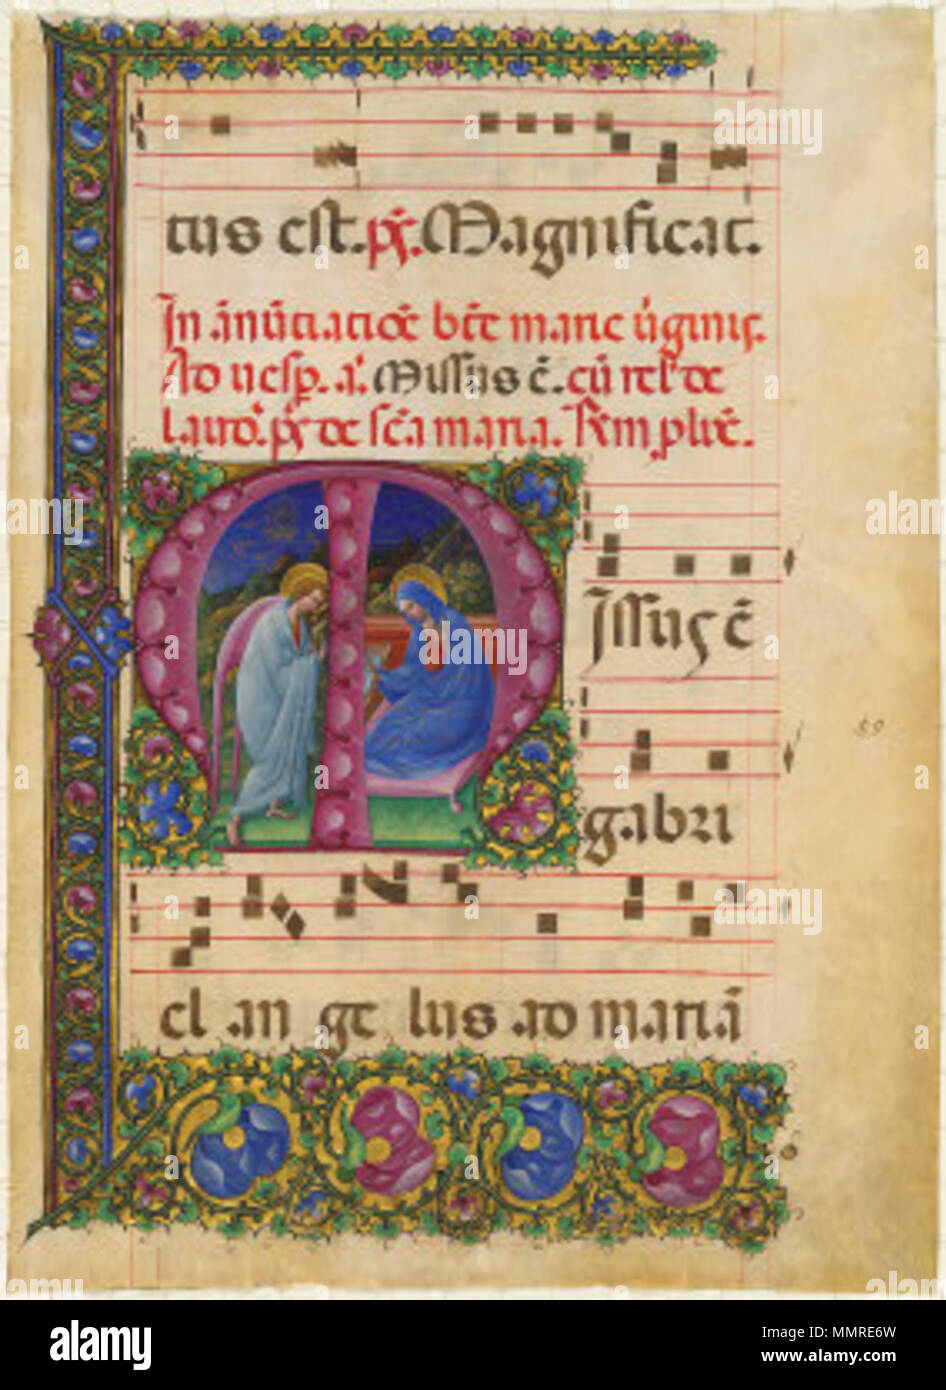 tus est. ps̄. Magnificat.
In ānūtiatiōe bt̄e marie v̄ginis.
Ad uesp̄. a. Missus ē. cū rel' de
laud'. ps̄ de sc̄a maria.
M
issus ē
gabri
el an ge lus ad mariā
59
alamy
Image ID: MMRE6W
www.alamy.com